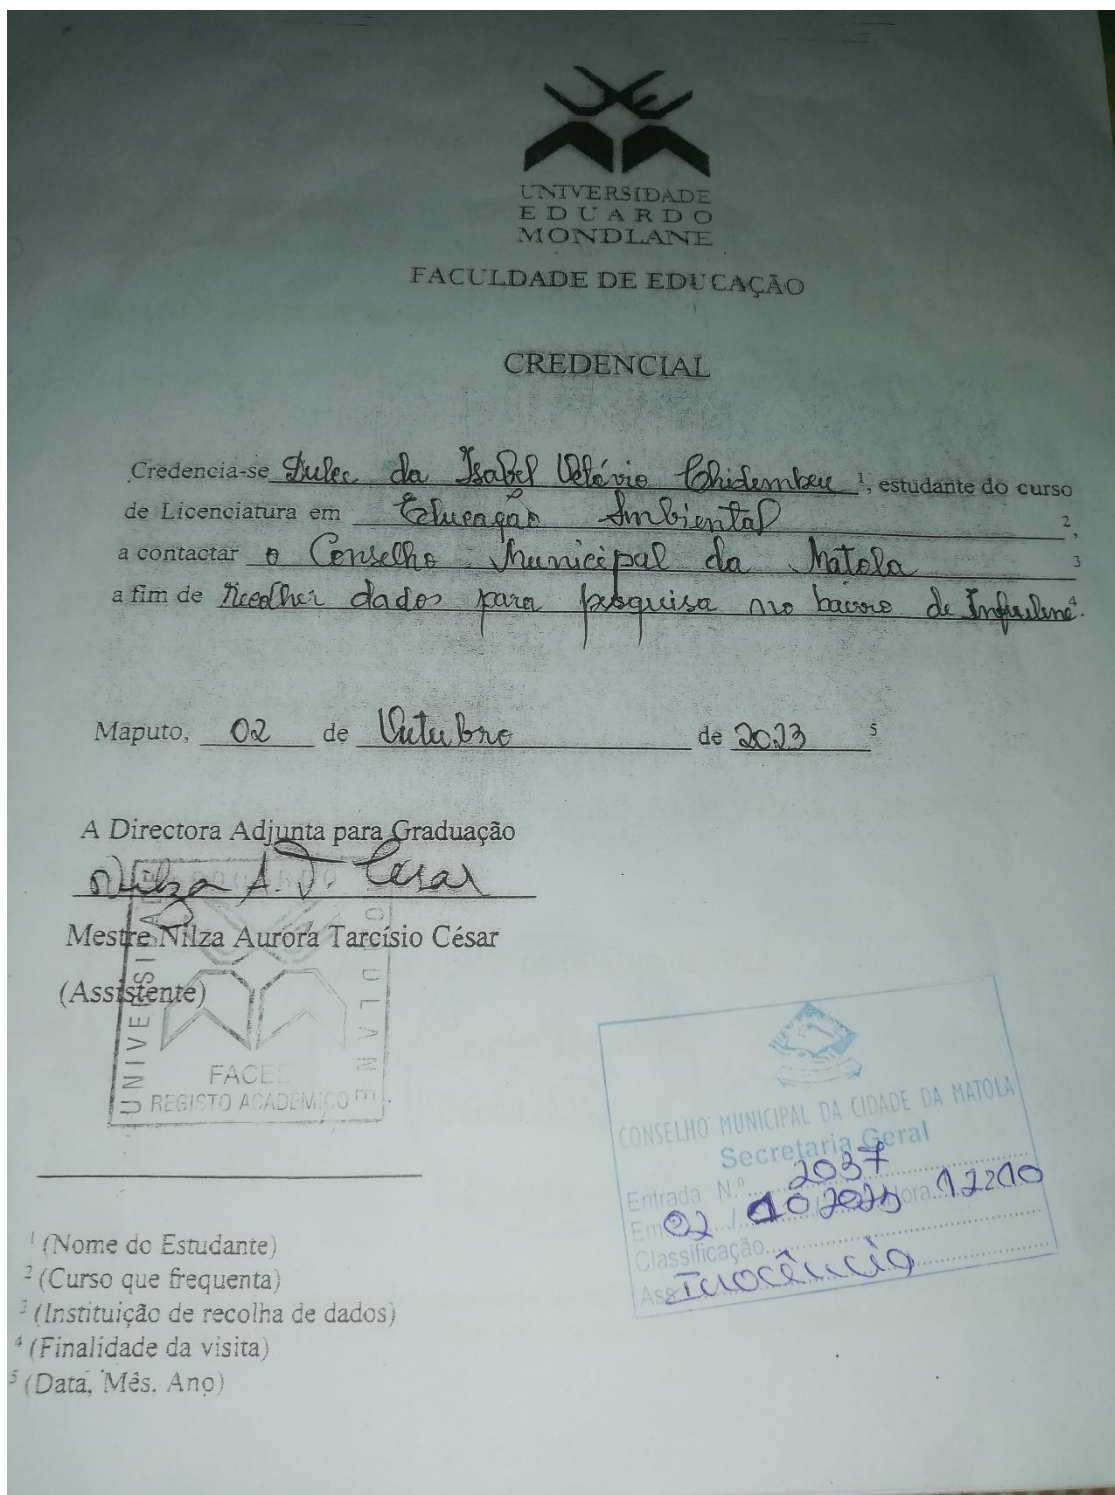 UNIVERSIDADE
EDUARDO
MONDLANE
FACULDADE DE EDUCAÇÃO
CREDENCIAL
Credencia-se Dulce da Isabel Octávio Chidembeu ¹, estudante do curso
de Licenciatura em Educação Ambiental ²,
a contactar o Conselho Municipal da Matola ³
a fim de recolher dados para pesquisa no bairro de Infulene ⁴.
Maputo, 02 de Outubro de 2023 ⁵
A Directora Adjunta para Graduação
Nilza A. T. César
Mestre Nilza Aurora Tarcísio César
(Assistente)
UNIVERSIDADE
MONDLANE
FACED
REGISTO ACADÉMICO
CONSELHO MUNICIPAL DA CIDADE DA MATOLA
Secretaria Geral
Entrada N.º 2037
Em 02 / 10 / Hora 12:10
Classificação
Ass Inocêncio
¹ (Nome do Estudante)
² (Curso que frequenta)
³ (Instituição de recolha de dados)
⁴ (Finalidade da visita)
⁵ (Data, Mês, Ano)